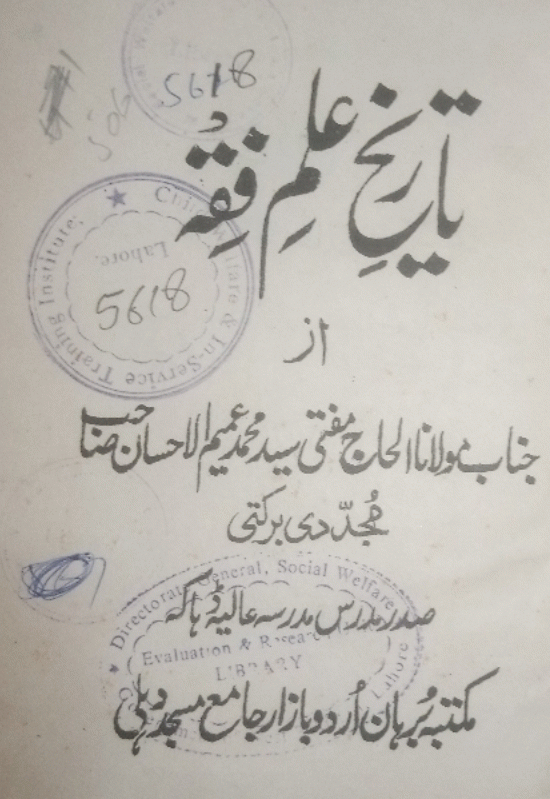 5618
506
تاریخِ علمِ فقہ
Child Welfare & In-Service Training Institute,
Lahore.
5618
از
جناب مولانا الحاج مفتی سید محمد عمیم الاحسان صاحب
مُجدّدی برکتی
صدر مدرس مدرسہ عالیہ ڈھاکہ
Directorate General, Social Welfare
Evaluation & Research
LIBRARY
Lahore
مکتبہ بُرہان اُردو بازار جامع مسجد دہلی